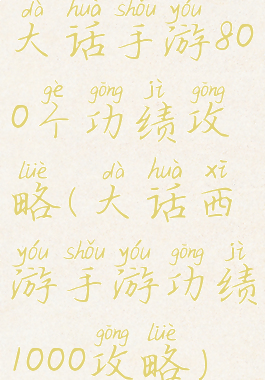 dà huà shǒu yóu
大话手游80
gè gōng jì gōng
0个功绩攻
lüè dà huà xī
略(大话西
yóu shǒu yóu gōng jì
游手游功绩
gōng lüè
1000攻略)